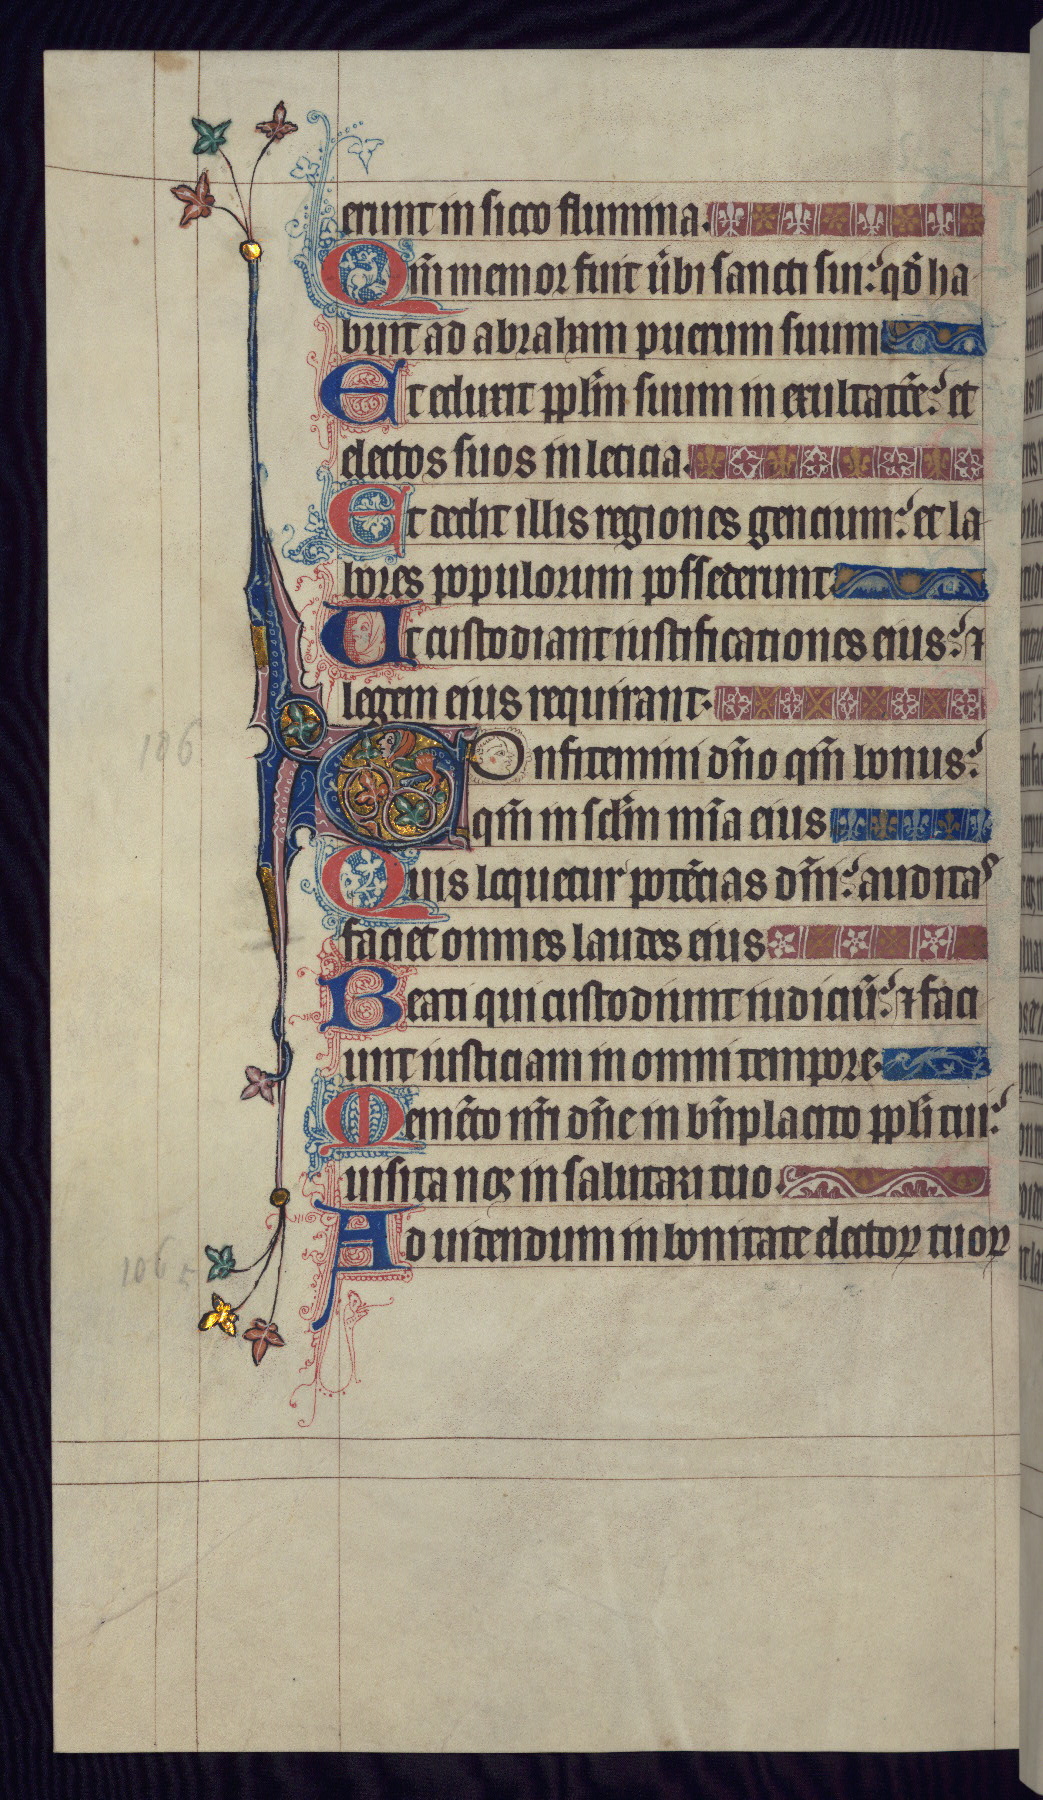 erunt in sicco flumina.
Qm̄ memor fuit u̾bi sancti sui: qd̄ ha
buit ad abraham puerum suum
Et eduxit ppl̄m suum in exultatōe: et
electos suos in leticia.
Et dedit illis regiones gencium: et la
bores populorum possederunt
Ut custodiant iustificationes eius: ⁊
legem eius requirant.
106
Confitemini dn̄o qm̄ bonus:
qm̄ in sc̄lm mīa eius
Quis loquetur potēcias dm̄i: auditas
faciet omnes laudes eius
Beati qui custodiunt iudiciū: ⁊ faci
unt iusticiam in omni tempore.
Memēto nr̄i dn̄e in bn̄placito ppl̄i tui:
uisita nos in salutari tuo.
Ad uidendum in bonitate electoꝝ tuoꝝ
106 5